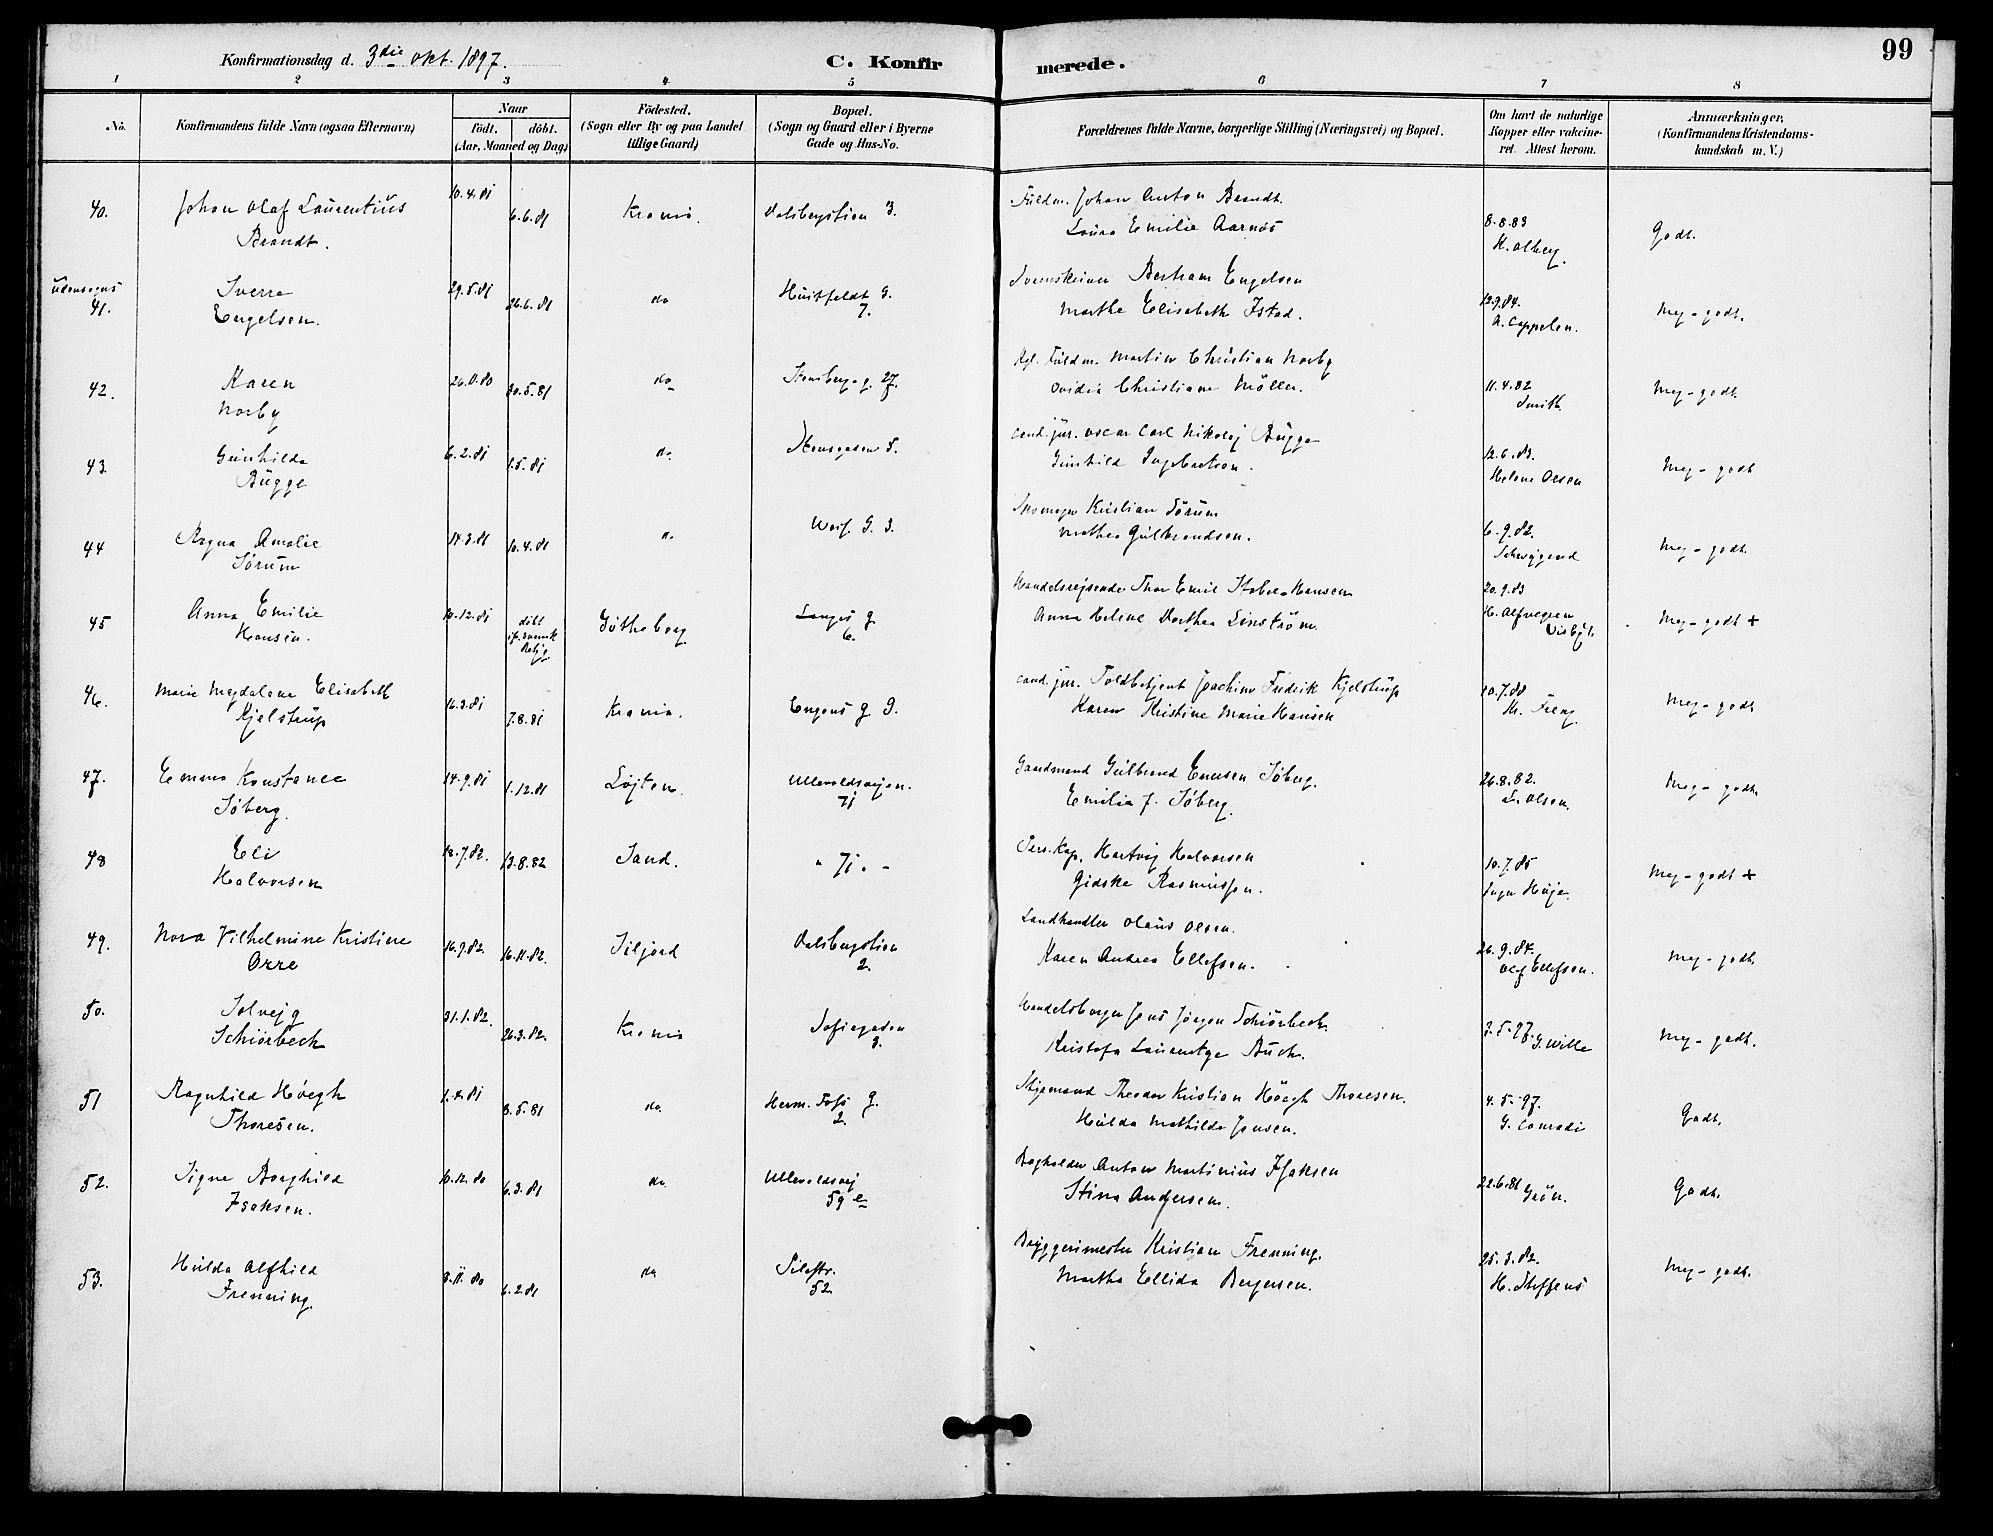 99
Konfirmationsdag d. 3die okt. 1897.
C. Konfirmerede.
1 2 3 4 5 6 7 8
No.
Konfirmandens fulde Navn (ogsaa Efternavn)
Naar
født. døbt.
(Aar, Maaned og Dag)
Fødested.
(Sogn eller By og paa Landet
tillige Gaard)
Bopæl.
(Sogn og Gaard eller i Byerne
Gade og Hus-No.
Forældrenes fulde Navne, borgerlige Stilling (Næringsvei) og Bopæl.
Om havt de naturlige
Kopper eller vakcine-
ret. Attest herom.
Anmærkninger,
(Konfirmandens Kristendoms-
kundskab m. V.)
40. Johan Olaf Laurentius 10.4.81 6.6.81 Krania. Dalsbergstien 3. Fuldm. Johan Anton Brandt. 8.8.83 Godt.
Brandt. Laura Emilie Aarnøs
udensogns
41. Sverre 29.5.81 26.6.81 do Huitfeldt G. Bertram Engelsen 12.9.84. Meg. godt.
Engelsen. 7. Marthe Elisabeth Istad. A. Cappelen.
42. Karen 30.5.81 do Stensberg. g. 27. Fuldm. Martin Christian Norby 11.4.82 Meg. godt.
Norby Ovidia Christiane Møller. Smith.
43. Gunhilda 6.2.81 1.5.81 do. Stensgaden 5. cand. jur. Oscar Carl Nikolaj Bugge 12.6.83. Meg. godt
Bugge Gunhild Ingebretsen. Helene Olsen
44 Ragna Amalie 14.3.81 10.4.81 do Kristian Sørum 6.9.82. Meg. godt.
Sørum Mathea Gulbrandsen. Schwÿgend
45 Anna Emilie 10.12.81 døbt Gøtheborg Langes g. Handelsrejsende Thor Emil Hansen 20.9.83 Meg. godt +
Hansen. svensk 6. Anna Helene Dorthea Linström.
46. Marie Magdalene Elisabeth 16.3.81 7.8.81 Krania. Engens g 9. cand. jur. Toldbetjent Joachim Fredrik Kjelstrup Meg. godt
Kjelstrup Karen Kristine Marie Hansen
47. Emma Konstance 14.9.81 1.12.81 Løjten. Ullevoldsvejen. Gaardmand Gulbrand Søberg. 26.8.82. Meg. godt.
Søberg. 71 Emilia J. Søberg. L. Olsen.
48 Eli 18.7.82. 13.8.82 Sand. " 71. - Hartvig Halvorsen 10.7.85 Meg. godt +
Halvorsen Gidske Rasmussen.
49. Nora Vilhelmine Kristine 16.9.82. 16.11.82. Siljord Dalsbergstien Landhandler Olaus Olsen. 26.9.84. Meg. godt.
Orre 2. Karen Andrea Ellefsen. Olaf Ellefsen.
50. Solvejg 31.1.82. 26.3.82. Krania Sofiegaden Handelsborger Jens Jørgen Schiørbeck. 3.5.97. Meg. godt.
Schiørbeck 3. Kristofa Laurentze Buch. G. Wille
51 Ragnhild Høegh 8.5.81 do. Herm. Foss g. Theodor Kristian Høegh Thoresen. 4.5.97. Godt.
Thoresen. 2. Hulda Mathilde Jensen. G. Conradi
52. Signe Borghild 10.12.80 6.3.81 do. Ullevoldsvej Bogholder Anton Martinius Isaksen 22.6.81 Grøn. Godt.
Isaksen. 59 e Stina Andersen.
53. Hulda Alfhild 8.11.80 6.2.81 do Pilestr. Bryggerimester Kristian Frenning. 25.3.82. Meg. godt.
Frenning. 52. Martha Ellida Bergersen. H. Steffens